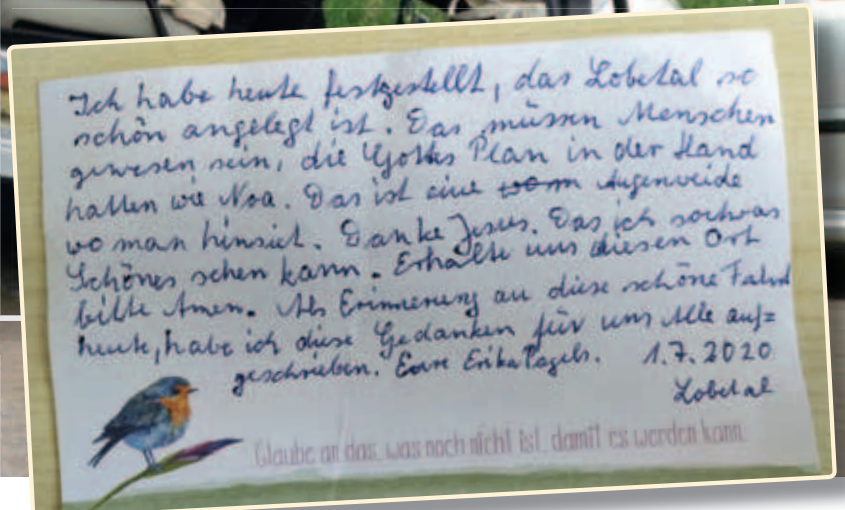 Ich habe heute festgestellt, das Lobetal so
schön angelegt ist. Das müssen Menschen
gewesen sein, die Gottes Plan in der Hand
hatten wie Noa. Das ist eine Augenweide
wo man hinsiet. Danke Jesus. Das ich sowas
Schönes sehen kann. Erhalte uns diesen Ort
bitte Amen. Als Erinnerung an diese schöne Fahrt
heute, habe ich diese Gedanken für uns Alle auf=
geschrieben. Eure Erika Pagels. 1.7.2020
Lobetal
Glaube an das, was noch nicht ist, damit es werden kann.